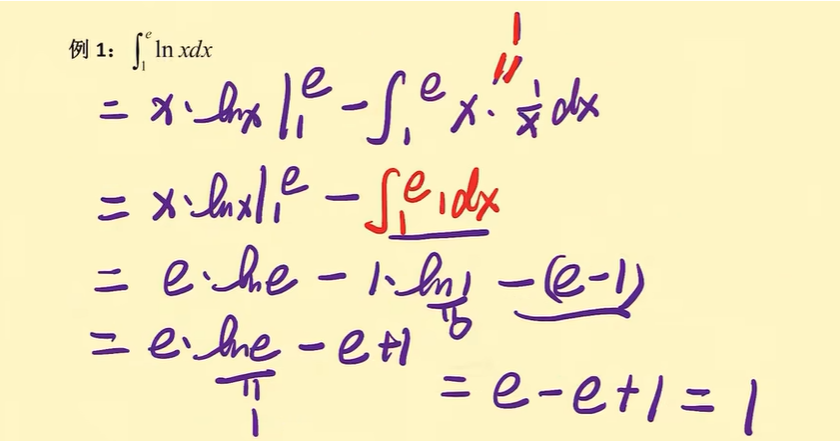 例 1： ∫₁ᵉ ln xdx
1
"
= x·lnx|₁ᵉ - ∫₁ᵉ x·1/x dx
= x·lnx|₁ᵉ - ∫₁ᵉ 1dx
= e·lne - 1·ln1 - (e-1)
" 0
= e·lne - e+1
" 1
= e-e+1=1